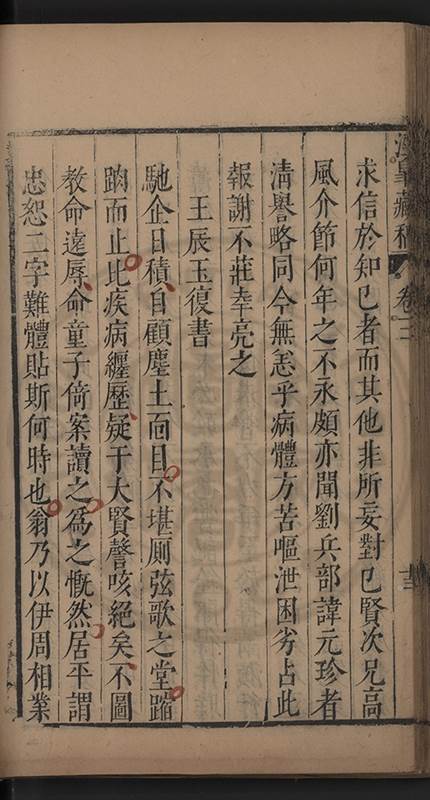 藏稿 卷三
求信於知己者而其他非所妄對也賢次兄高
風介節何年之不永頗亦聞劉兵部諱元珍者
清譽略同今無恙乎病體方苦嘔泄困劣占此
報謝不莊幸亮之
王辰玉復書
馳企日積自顧塵土面目不堪厠弦歌之堂踏
跼而止比疾病纏歷疑于大賢謦咳絕矣不圖
教命遠辱命童子倚案讀之爲之慨然居平謂
忠恕二字難體貼斯何時也翁乃以伊周相業